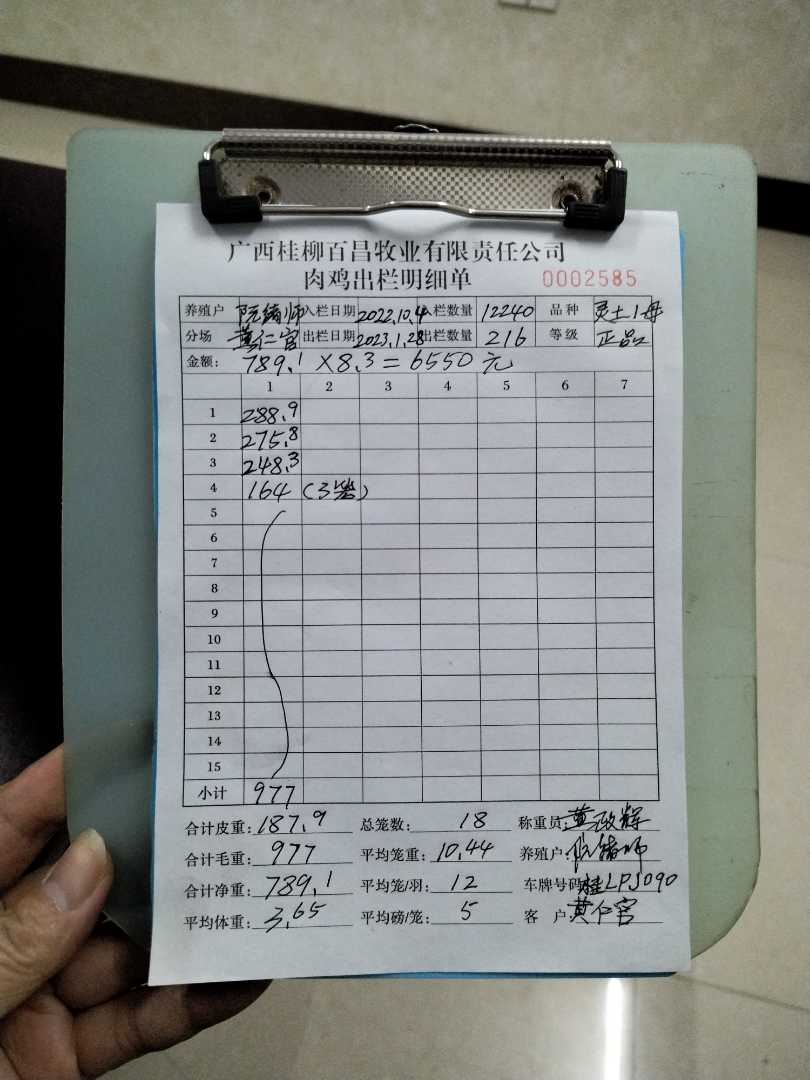 广西桂柳百昌牧业有限责任公司
肉鸡出栏明细单 0002585
养殖户 阮绪师 入栏日期 2022.10.4 入栏数量 12240 品种 灵土1母
分场 黄仁官 出栏日期 2023.1.28 出栏数量 216 等级 正品
金额: 789.1×8.3=6550元
1 2 3 4 5 6 7
1 288.9
2 275.8
3 248.3
4 164 (3
5
6
7
8
9
10
11
12
13
14
15
小计 977
合计皮重: 187.9 总笼数: 18 称重员: 黄政辉
合计毛重: 977 平均笼重: 10.44 养殖户: 阮绪师
合计净重: 789.1 平均笼/羽: 12 车牌号码: 桂LPJ090
平均体重: 3.65 平均磅/笼: 5 客户: 黄仁官